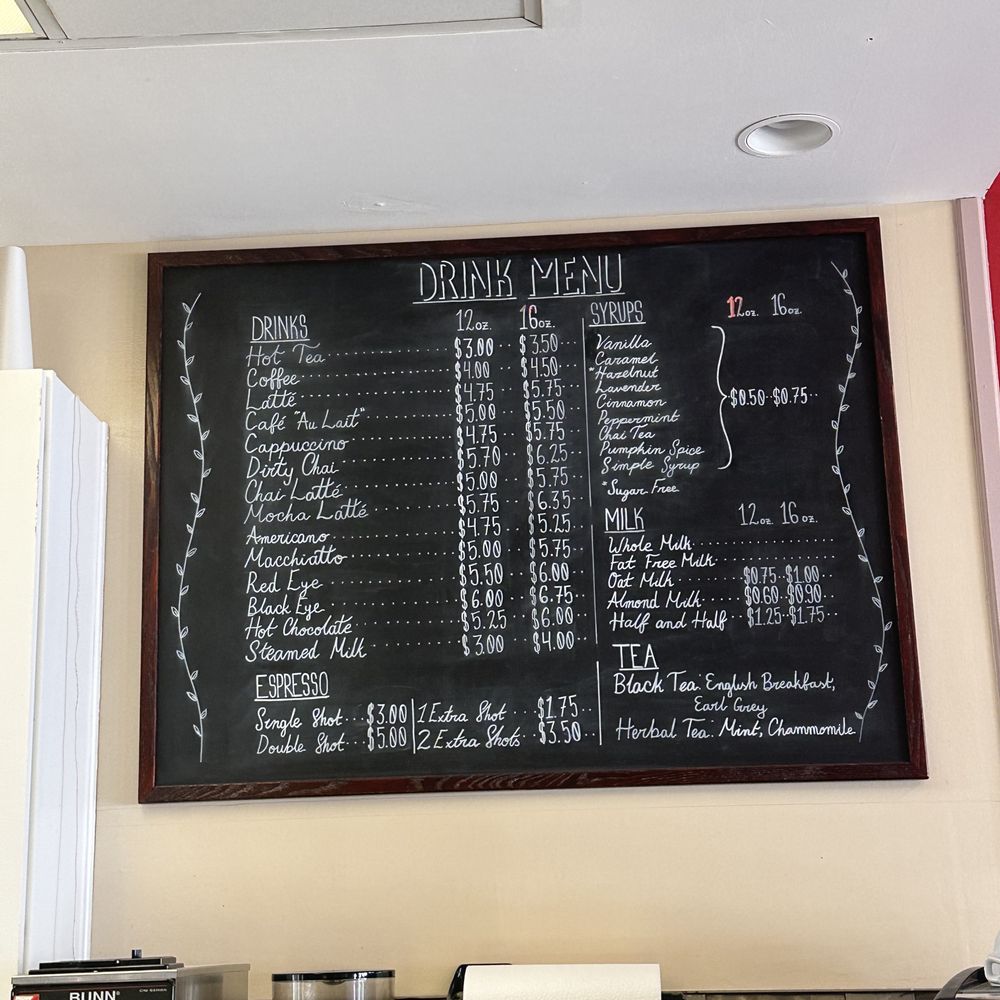 DRINK MENU
DRINKS 12oz. 16oz.
Hot Tea $3.00 $3.50
Coffee $4.00 $4.50
Latté $4.75 $5.75
Café "Au Lait" $5.00 $5.50
Cappuccino $4.75 $5.75
Dirty Chai $5.70 $6.25
Chai Latté $5.00 $5.75
Mocha Latté $5.75 $6.35
Americano $4.75 $5.25
Macchiatto $5.00 $5.75
Red Eye $5.50 $6.00
Black Eye $6.00 $6.75
Hot Chocolate $5.25 $6.00
Steamed Milk $3.00 $4.00
ESPRESSO
Single Shot $3.00
Double Shot $5.00
1 Extra Shot $1.75
2 Extra Shots $3.50
SYRUPS 12oz. 16oz.
Vanilla
Caramel
*Hazelnut
Lavender
Cinnamon $0.50 $0.75
Peppermint
Chai Tea
Pumpkin Spice
Simple Syrup
*Sugar Free
MILK 12oz. 16oz.
Whole Milk
Fat Free Milk
Oat Milk $0.75 $1.00
Almond Milk $0.60 $0.90
Half and Half $1.25 $1.75
TEA
Black Tea: English Breakfast,
Earl Grey
Herbal Tea: Mint, Chammomile
BUNN